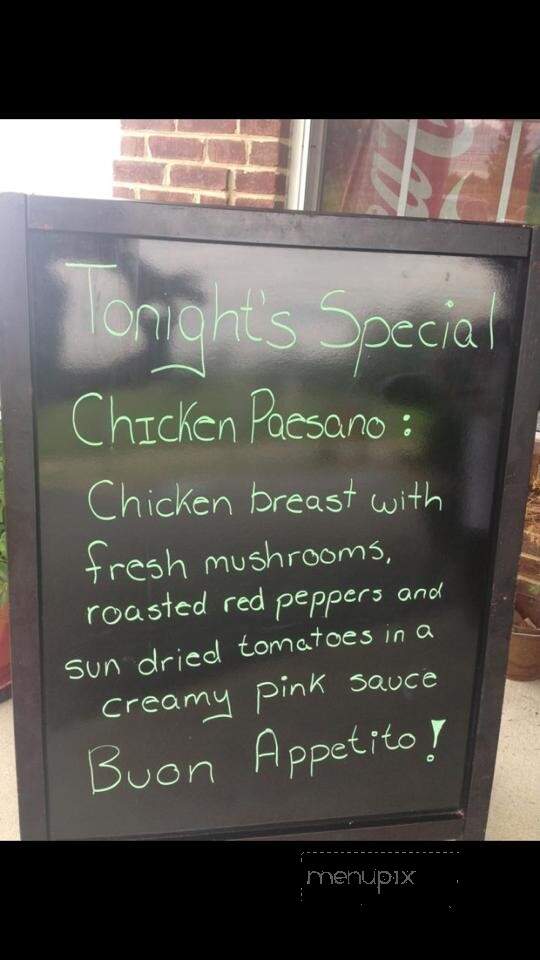 Tonight's Special
Chicken Paesano :
Chicken breast with
fresh mushrooms,
roasted red peppers and
sun dried tomatoes in a
creamy pink sauce
Buon Appetito!
menupix